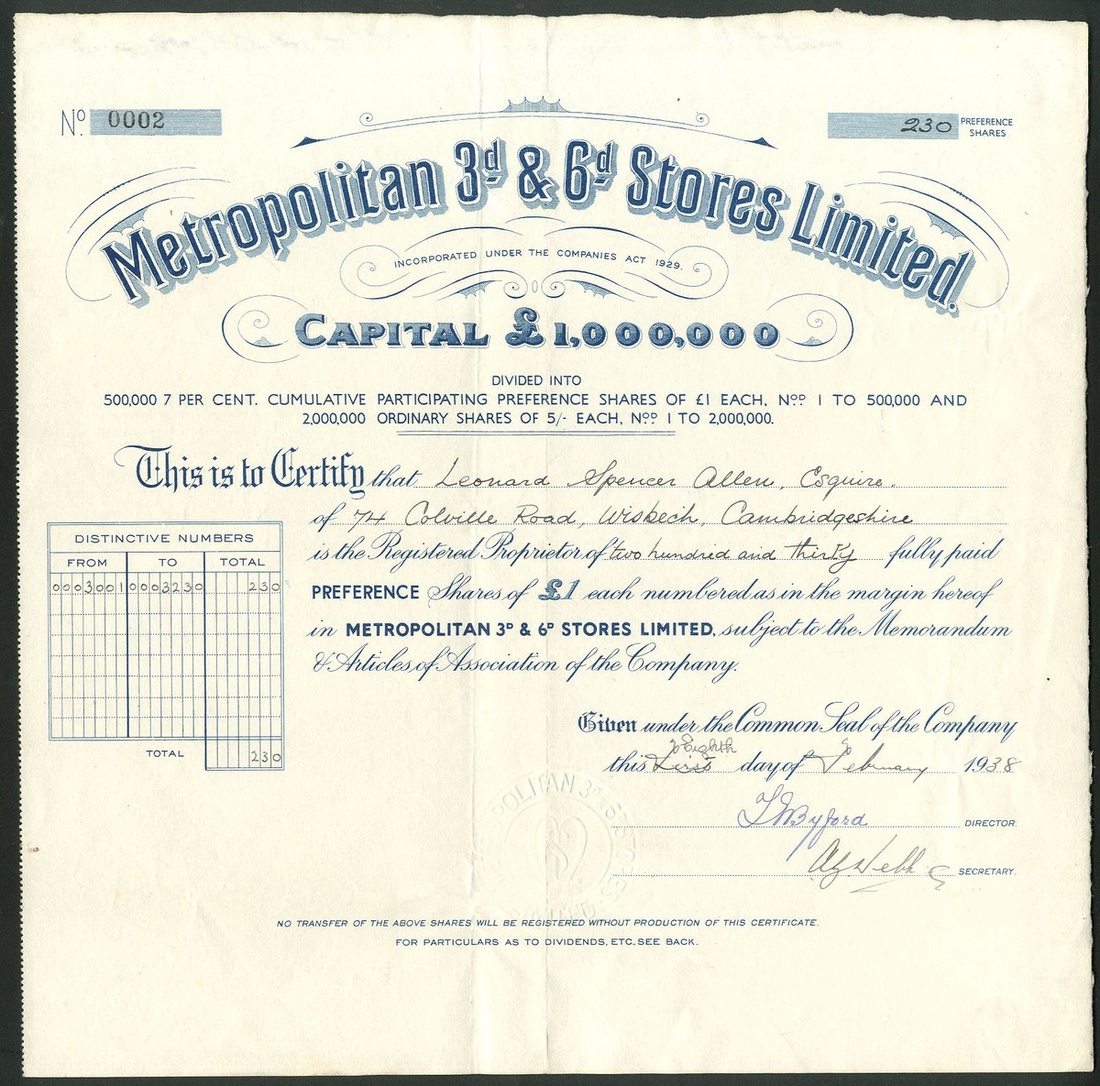 Nº 0002
230 PREFERENCE SHARES
Metropolitan 3d & 6d Stores Limited.
INCORPORATED UNDER THE COMPANIES ACT 1929.
CAPITAL £1,000,000
DIVIDED INTO
500,000 7 PER CENT. CUMULATIVE PARTICIPATING PREFERENCE SHARES OF £1 EACH, Nos 1 TO 500,000 AND
2,000,000 ORDINARY SHARES OF 5/- EACH, Nos 1 TO 2,000,000.
This is to Certify that Leonard Spencer Allen, Esquire.
of 74 Colville Road, Wisbech, Cambridgeshire
is the Registered Proprietor of two hundred and thirty fully paid
PREFERENCE Shares of £1 each numbered as in the margin hereof
in METROPOLITAN 3D & 6D STORES LIMITED, subject to the Memorandum
& Articles of Association of the Company.
DISTINCTIVE NUMBERS
FROM TO TOTAL
0003001 0003230 230
TOTAL 230
Given under the Common Seal of the Company
Eighth
this First day of February 1938
DIRECTOR.
SECRETARY.
NO TRANSFER OF THE ABOVE SHARES WILL BE REGISTERED WITHOUT PRODUCTION OF THIS CERTIFICATE.
FOR PARTICULARS AS TO DIVIDENDS, ETC. SEE BACK.